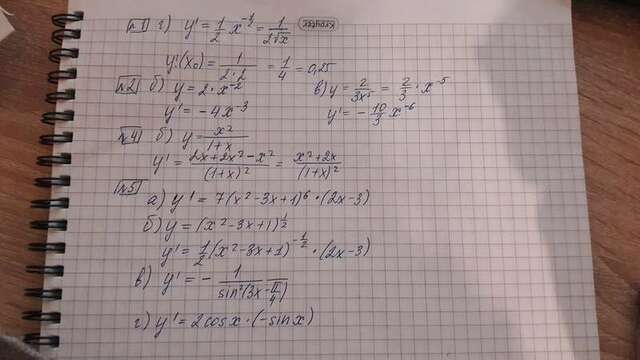 №1 г) y' = 1/2 x^(-1/2) = 1/(2√x)
y'(x₀) = 1/(2·2) = 1/4 = 0,25
№2 б) y = 2·x^(-2) в) y = 2/(3x⁵) = 2/3·x^(-5)
y' = -4x^(-3) y' = -10/3 x^(-6)
№4 б) y = x²/(1+x)
y' = (2x+2x²-x²)/(1+x)² = (x²+2x)/(1+x)²
№5
а) y' = 7(x²-3x+1)⁶·(2x-3)
б) y = (x²-3x+1)^(1/2)
y' = 1/2(x²-3x+1)^(-1/2)·(2x-3)
в) y' = - 1/(sin²(3x-π/4))
г) y' = 2cosx·(-sinx)